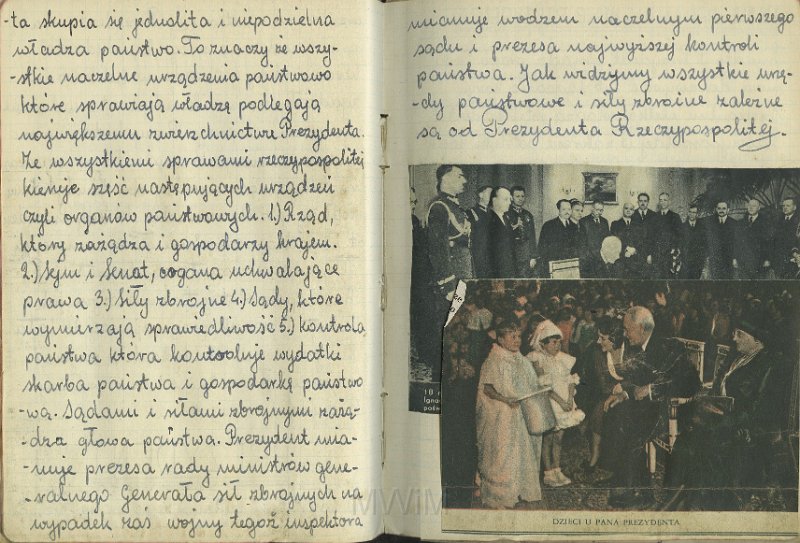 -ta skupia się jednolita i niepodzielna
władza państwo. To znaczy że wszy-
-stkie naczelne urządzenia państwowo
które sprawiają władzę podlegają
największemu zwierzchnictwu Prezydenta.
Ze wszystkiemi sprawami rzeczypospolitej
kieruje sześć następujących urządzeń
czyli organów państwowych. 1.) Rząd,
który zażądza i gospodarzy krajem.
2.) Sejm i Senat, organa uchwalające
prawa 3.) Siły zbrojne 4.) Sądy, które
wymierzają sprawiedliwość 5.) kontrola
państwa która kontroluje wydatki
skarba państwa i gospodarkę państwo
-wą. Sądami i siłami zbrojnymi zażą-
-dza głowa państwa. Prezydent mia-
-nuje prezesa rady ministrów gene-
-ralnego Generała sił zbrojnych na
wypadek zaś wojny tegoż inspektora
mianuje wodzem naczelnym pierwszego
sądu i prezesa najwyższej kontroli
państwa. Jak widzimy wszystkie urzę-
-dy państwowe i siły zbrojne zależne
są od Prezydenta Rzeczypospolitej.
18
Igna
DZIECI U PANA PREZYDENTA
MWiM